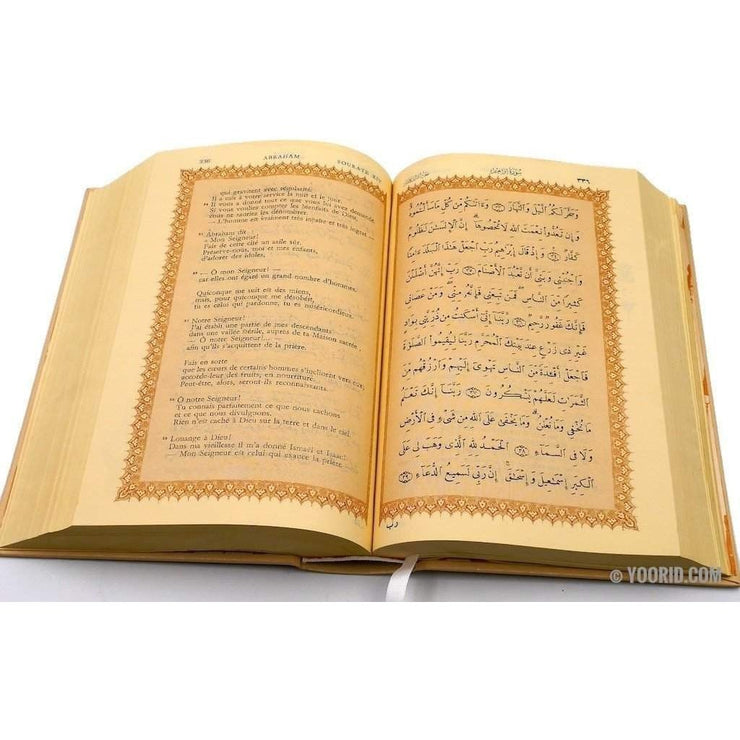 336 ABRAHAM SOURATE XIV
qui gravitent avec régularité.
Il a mis à votre service la nuit et le jour.
34 Il vous a donné tout ce que vous lui avez demandé.
Si vous vouliez compter les bienfaits de Dieu,
vous ne sauriez les dénombrer.
— L'homme est vraiment très injuste et très ingrat —
35 Abraham dit :
« Mon Seigneur!
Fais de cette cité un asile sûr.
Préserve-nous, moi et mes enfants,
d'adorer des idoles.
36 — Ô mon Seigneur!
car elles ont égaré un grand nombre d'hommes.
Quiconque me suit est des miens,
mais, pour quiconque me désobéit,
tu es celui qui pardonne, tu es miséricordieux.
37 Notre Seigneur!
J'ai établi une partie de mes descendants
dans une vallée stérile, auprès de ta Maison sacrée,
— ô notre Seigneur! —
afin qu'ils s'acquittent de la prière.
Fais en sorte
que les cœurs de certains hommes s'inclinent vers eux;
accorde-leur des fruits, en nourriture.
Peut-être, alors, seront-ils reconnaissants.
38 Ô notre Seigneur!
Tu connais parfaitement ce que nous cachons
et ce que nous divulguons.
Rien n'est caché à Dieu sur la terre et dans le ciel.
39 Louange à Dieu!
Dans ma vieillesse il m'a donné Ismaël et Isaac!
— Mon Seigneur est celui qui exauce la prière —
سورة إبراهيم ٣٣٦
وَسَخَّرَ لَكُمُ الَّيْلَ وَالنَّهَارَ ﴿٣٣﴾ وَءَاتَىٰكُم مِّن كُلِّ مَا سَأَلْتُمُوهُ
وَإِن تَعُدُّوا نِعْمَتَ اللَّهِ لَا تُحْصُوهَا ۗ إِنَّ الْإِنسَٰنَ لَظَلُومٌ
كَفَّارٌ ﴿٣٤﴾ وَإِذْ قَالَ إِبْرَٰهِيمُ رَبِّ اجْعَلْ هَٰذَا الْبَلَدَ ءَامِنًا
وَاجْنُبْنِي وَبَنِيَّ أَن نَّعْبُدَ الْأَصْنَامَ ﴿٣٥﴾ رَبِّ إِنَّهُنَّ أَضْلَلْنَ
كَثِيرًا مِّنَ النَّاسِ ۖ فَمَن تَبِعَنِي فَإِنَّهُ مِنِّي ۖ وَمَنْ عَصَانِي
فَإِنَّكَ غَفُورٌ رَّحِيمٌ ﴿٣٦﴾ رَّبَّنَا إِنِّي أَسْكَنتُ مِن ذُرِّيَّتِي بِوَادٍ
غَيْرِ ذِي زَرْعٍ عِندَ بَيْتِكَ الْمُحَرَّمِ رَبَّنَا لِيُقِيمُوا الصَّلَوٰةَ
فَاجْعَلْ أَفْـِٔدَةً مِّنَ النَّاسِ تَهْوِي إِلَيْهِمْ وَارْزُقْهُم مِّنَ
الثَّمَرَٰتِ لَعَلَّهُمْ يَشْكُرُونَ ﴿٣٧﴾ رَبَّنَا إِنَّكَ تَعْلَمُ
مَا نُخْفِي وَمَا نُعْلِنُ ۗ وَمَا يَخْفَىٰ عَلَى اللَّهِ مِن شَيْءٍ فِي الْأَرْضِ
وَلَا فِي السَّمَاءِ ﴿٣٨﴾ الْحَمْدُ لِلَّهِ الَّذِي وَهَبَ لِي عَلَى
الْكِبَرِ إِسْمَٰعِيلَ وَإِسْحَٰقَ ۚ إِنَّ رَبِّي لَسَمِيعُ الدُّعَاءِ ﴿٣٩﴾
رب
© YOORID.COM